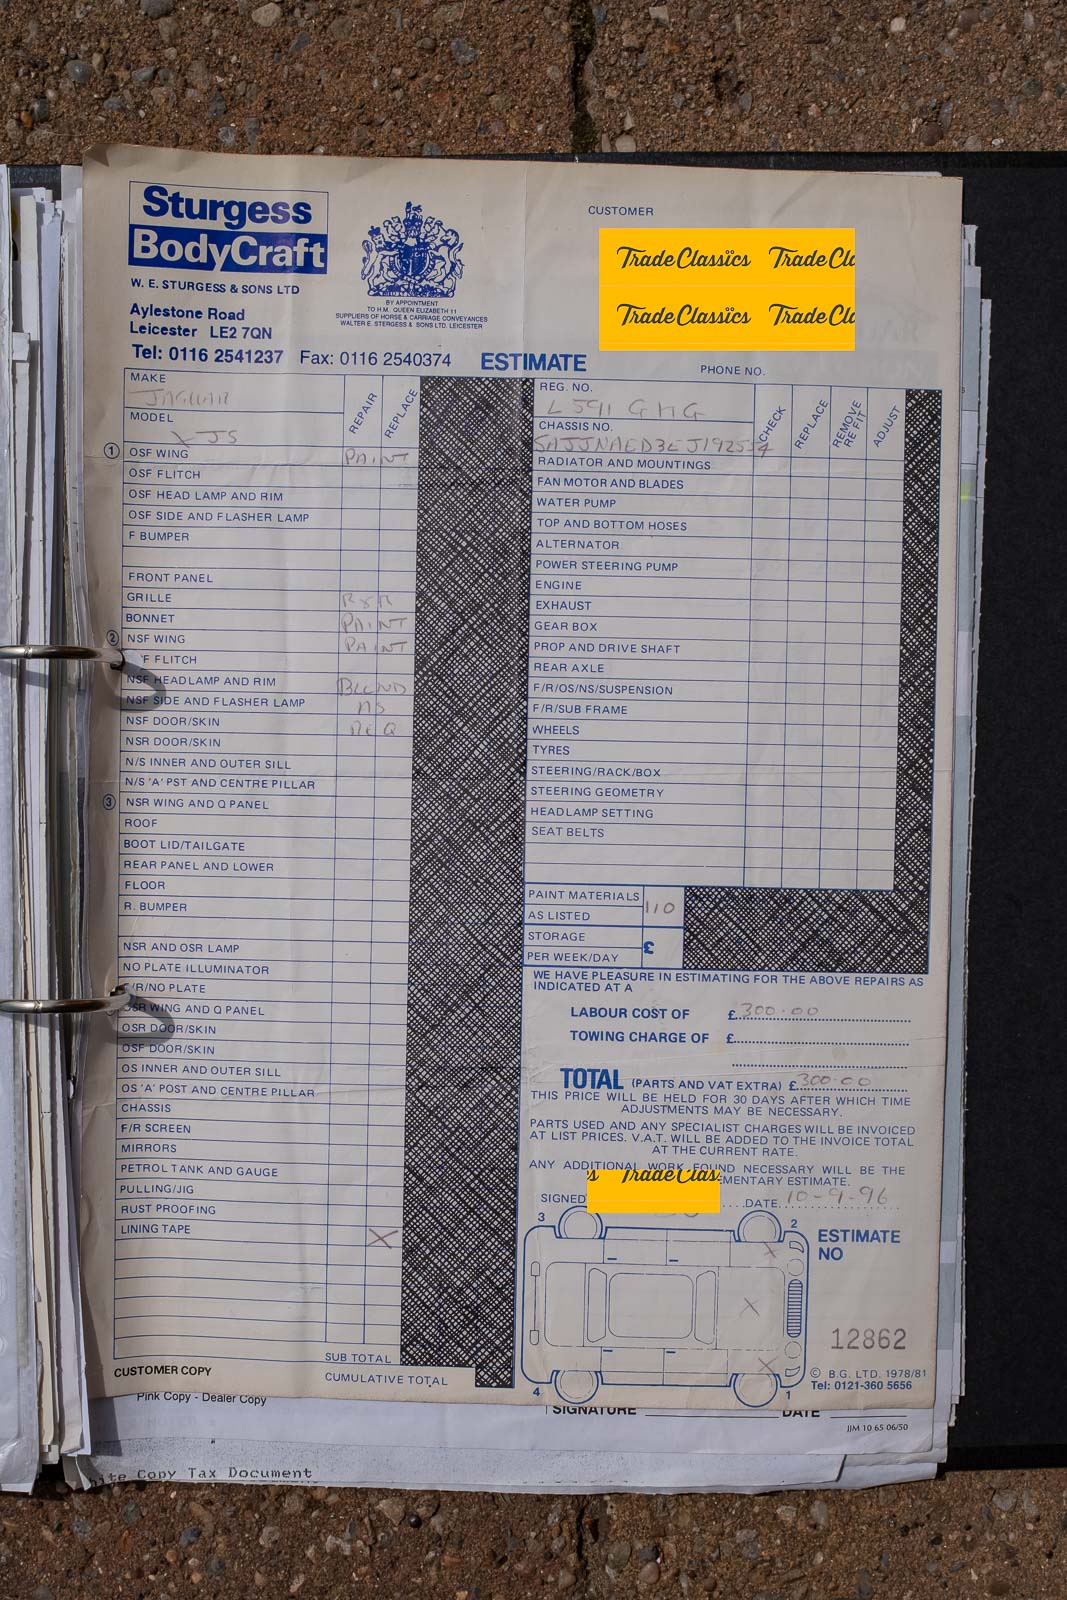 Sturgess
BodyCraft
W. E. STURGESS & SONS LTD
Aylestone Road
Leicester LE2 7QN
Tel: 0116 2541237 Fax: 0116 2540374
BY APPOINTMENT
TO H.M. QUEEN ELIZABETH 11
SUPPLIERS OF HORSE & CARRIAGE CONVEYANCES
WALTER E. STERGESS & SONS LTD. LEICESTER
ESTIMATE
CUSTOMER
TradeClassics TradeCl
TradeClassics TradeCl
PHONE NO.
MAKE
JAGUAR
MODEL
XJS
REPAIR
REPLACE
1 OSF WING PAINT
OSF FLITCH
OSF HEAD LAMP AND RIM
OSF SIDE AND FLASHER LAMP
F BUMPER
FRONT PANEL
GRILLE R&R
BONNET PAINT
2 NSF WING PAINT
F FLITCH
NSF HEADLAMP AND RIM BLEND
NSF SIDE AND FLASHER LAMP AS
NSF DOOR/SKIN REQ
NSR DOOR/SKIN
N/S INNER AND OUTER SILL
N/S 'A' PST AND CENTRE PILLAR
3 NSR WING AND Q PANEL
ROOF
BOOT LID/TAILGATE
REAR PANEL AND LOWER
FLOOR
R. BUMPER
NSR AND OSR LAMP
NO PLATE ILLUMINATOR
/R/NO PLATE
OSR WING AND Q PANEL
OSR DOOR/SKIN
OSF DOOR/SKIN
OS INNER AND OUTER SILL
OS 'A' POST AND CENTRE PILLAR
CHASSIS
F/R SCREEN
MIRRORS
PETROL TANK AND GAUGE
PULLING/JIG
RUST PROOFING
LINING TAPE X
SUB TOTAL
CUSTOMER COPY
CUMULATIVE TOTAL
REG. NO.
L591 GHG
CHASSIS NO.
SAJJNAED3EJ192554
CHECK
REPLACE
REMOVE
RE FIT
ADJUST
RADIATOR AND MOUNTINGS
FAN MOTOR AND BLADES
WATER PUMP
TOP AND BOTTOM HOSES
ALTERNATOR
POWER STEERING PUMP
ENGINE
EXHAUST
GEAR BOX
PROP AND DRIVE SHAFT
REAR AXLE
F/R/OS/NS/SUSPENSION
F/R/SUB FRAME
WHEELS
TYRES
STEERING/RACK/BOX
STEERING GEOMETRY
HEADLAMP SETTING
SEAT BELTS
PAINT MATERIALS
AS LISTED 110
STORAGE
PER WEEK/DAY £
WE HAVE PLEASURE IN ESTIMATING FOR THE ABOVE REPAIRS AS
INDICATED AT A
LABOUR COST OF £ 300.00
TOWING CHARGE OF £
TOTAL (PARTS AND VAT EXTRA) £ 300.00
THIS PRICE WILL BE HELD FOR 30 DAYS AFTER WHICH TIME
ADJUSTMENTS MAY BE NECESSARY.
PARTS USED AND ANY SPECIALIST CHARGES WILL BE INVOICED
AT LIST PRICES. V.A.T. WILL BE ADDED TO THE INVOICE TOTAL
AT THE CURRENT RATE.
ANY ADDITIONAL WORK FOUND NECESSARY WILL BE THE
EMENTARY ESTIMATE.
TradeClas
SIGNED DATE 10-9-96
3 2
ESTIMATE
NO
12862
4 1
© B.G. LTD. 1978/81
Tel: 0121-360 5656
Pink Copy - Dealer Copy
SIGNATURE DATE
JJM 10 65 06/50
hite Copy Tax Document